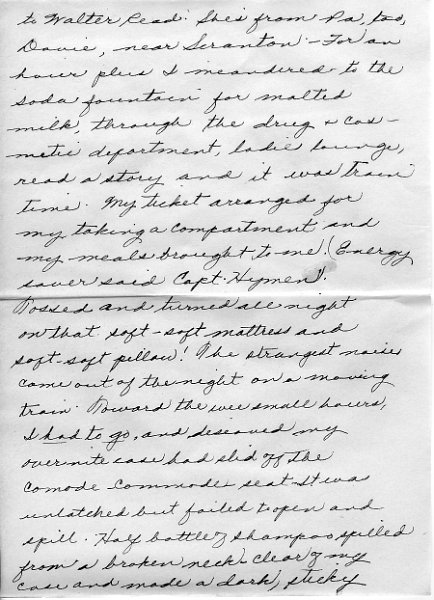 to Walter Read. She's from Pa, too,
Davie, near Scranton - For an
hour plus I meandered to the
soda fountain for malted
milk, through the drug & cos-
metic department, ladie lounge,
read a story and it was train
time. My ticket arranged for
my taking a compartment and
my meals brought to me! (Energy
saver said Capt. Hymen).
Tossed and turned all night
on that soft-soft mattress and
soft-soft pillow! The strangest noises
come out of the night on a moving
train. Toward the wee small hours,
I had to go, and discoved my
overnite case had slid off the
comode commode seat. It was
unlatched but failed to open and
spill. Half bottle of shampoo spilled
from a broken neck - clear of my
case and made a dark, sticky